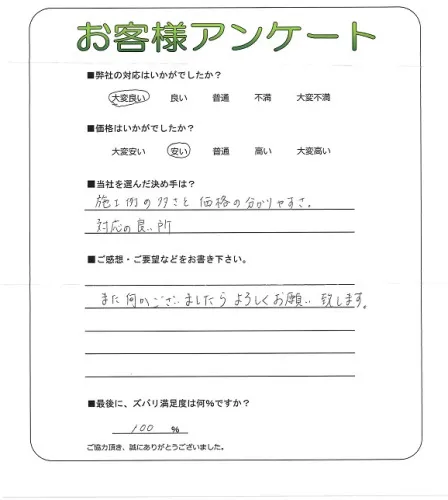 お客様アンケート
■弊社の対応はいかがでしたか？
大変良い 良い 普通 不満 大変不満
■価格はいかがでしたか？
大変安い 安い 普通 高い 大変高い
■当社を選んだ決め手は？
施工例の多さと価格の分かりやすさ。
対応の良い所
■ご感想・ご要望などをお書き下さい。
また何かございましたらよろしくお願い致します。
■最後に、ズバリ満足度は何%ですか？
100 %
ご協力頂き、誠にありがとうございました。